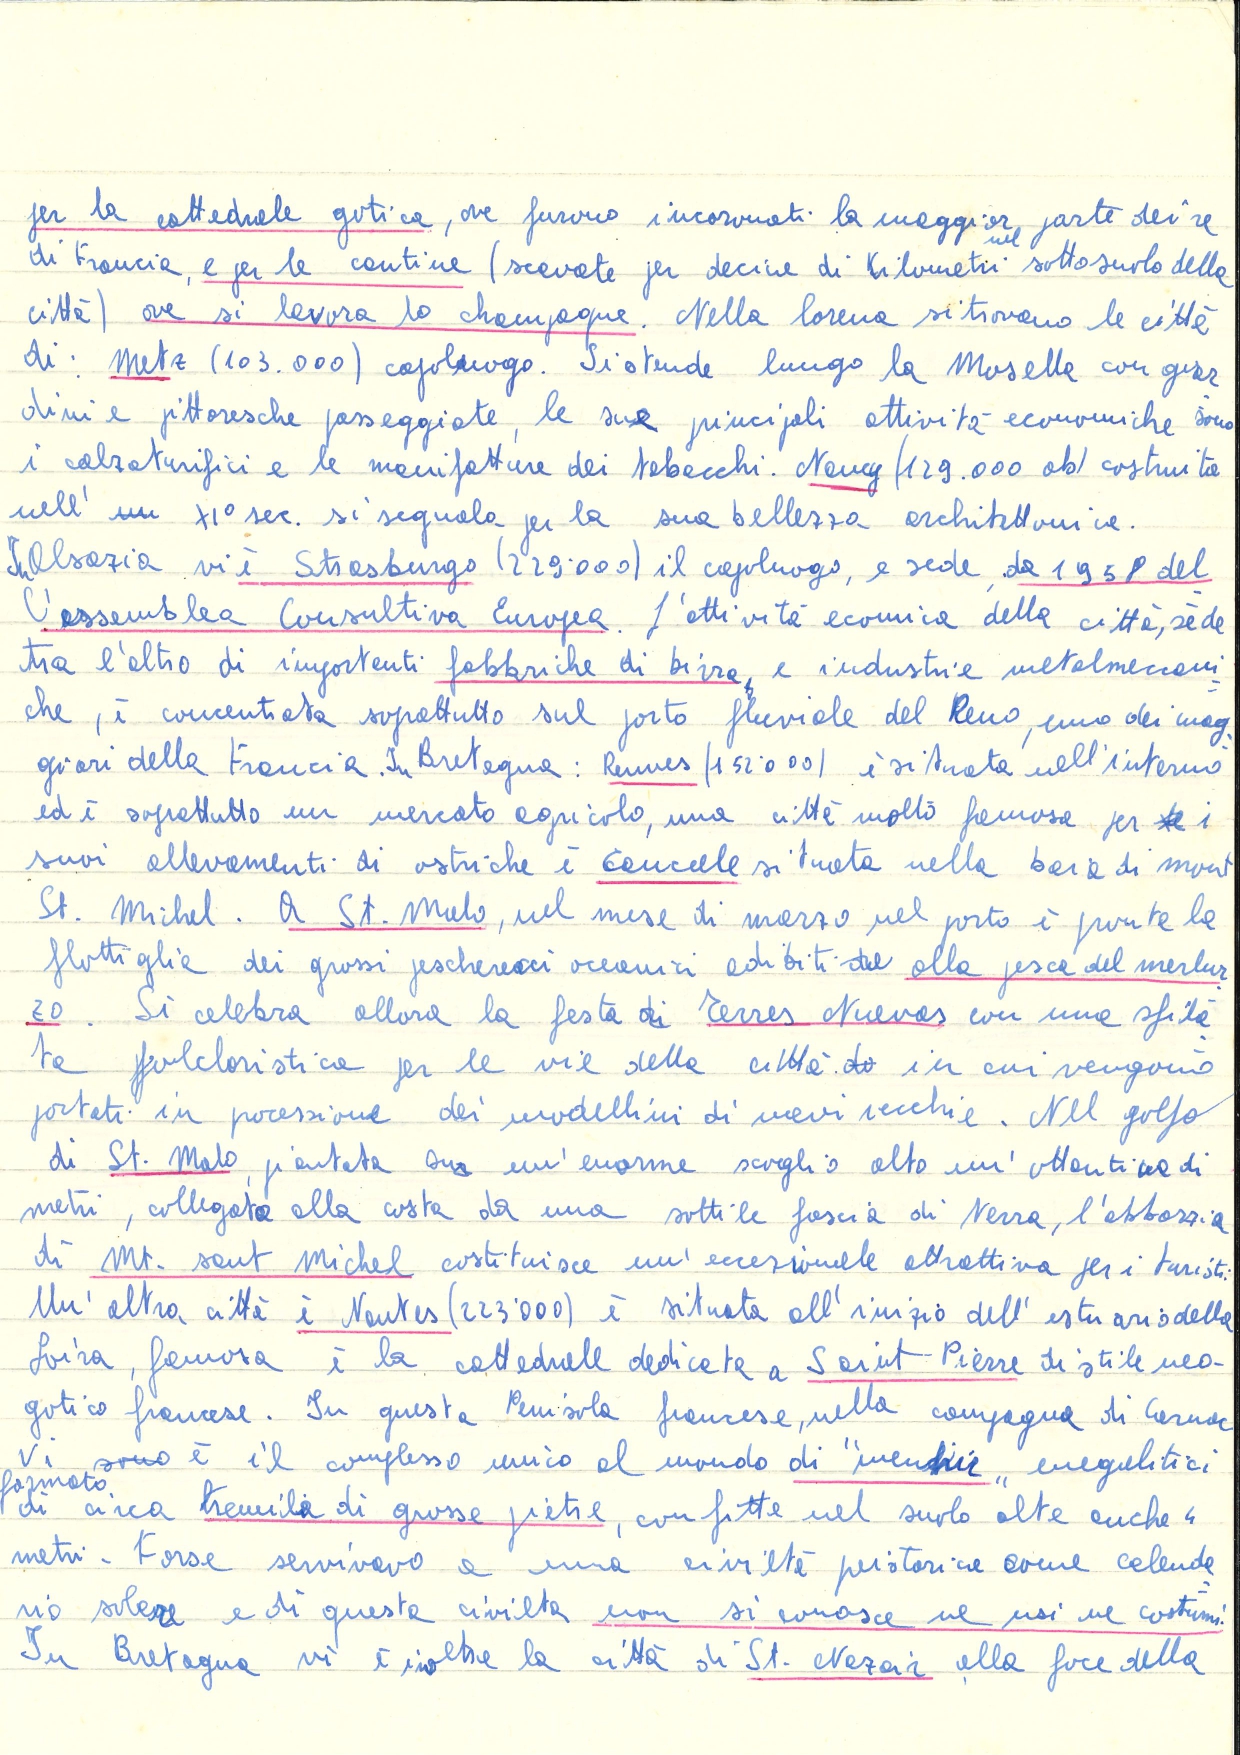 per la cattedrale gotica, ove furono incoronati la maggior parte dei re
di Francia, e per le cantine (scavate per decine di kilometri nel sottosuolo della
città) ove si lavora lo champagne. Nella lorena si trovano le città
di: Metz (103.000) capoluogo. Si stende lungo la Mosella con giar
dini e pittoresche passeggiate, le sue principali attività economiche sono
i calzaturifici e le manifatture dei tabacchi. Nancy (129.000 ab) costruita
nell' un XI° sec. si segnala per la sua bellezza architettonica.
In Alsazia vi è Strasburgo (229.000) il capoluogo, e sede, da 1958 del
l'assemblea Consultiva Europea. L'attività ecomica della città, sede
tra l'altro di importenti fabbriche di birra, e industrie metalmeccani
che, è concentrata soprattutto sul porto fluviale del Reno, uno dei mag
giori della Francia. In Bretagna: Rennes (152.000) è situata nell'interno
ed è soprattutto un mercato agricolo, una città molto famosa per le i
suoi allevamenti di ostriche è Cancele situata nella baia di mont
St. Michel. A St. Malo, nel mese di marzo nel porto è pronta la
flottiglia dei grossi pescherecci oceanici adibiti alla pesca del merluz
zo. Si celebra allora la festa di Terres Nuevas con una sfila
ta folcloristica per le vie della città do in cui vengono
portati in pocessione dei modellini di navi vecchie. Nel golfo
di St. Malo, piantata su un'enorme scoglio alto un'ottantina di
metri, collegata alla costa da una sottile fascia di terra, l'abbazzia
di Mt. sant Michel costituisce un'eccezionele attrattiva per i turisti.
Un'altra città è Nantes (223.000) è situata all'inizio dell'estuario della
Loira, famosa è la cattedrale dedicata a Saint Pierre di stile neo-
gotico francese. In questa Penisola francese, nella campagna di Carnac
vi sono è il complesso unico al mondo di "menhir" megalitici
formato di circa tremila di grosse pietre, conficcate nel suolo alte anche 4
metri. Forse servivavo a una civiltà peistorica come calenda
rio solare e di questa civilta non si conosce ne usi ne costumi.
In Bretagna vi è inoltre la città di St. Nazair alla foce della